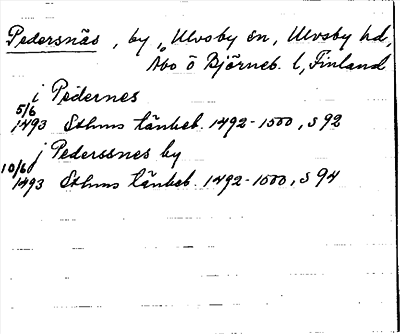 Pedersnäs, by, Ulvsby sn, Ulvsby hd,
Åbo o Björneb. l, Finland
i Pedernes
5/6 1493 Sthms tänkeb. 1492-1500, s 92
j Pederssnes by
10/6 1493 Sthms tänkeb. 1492-1500, s 94